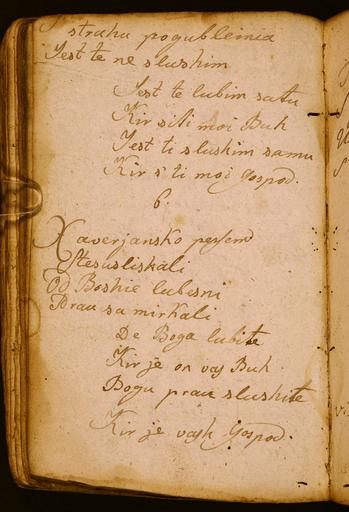 strahu pogubleinia
Jest te ne slushim
Jest te lubim satu
Kir si ti moi Buh
Jest ti slushim samu
Kir s' ti moj Gospod.
6.
Xaverjansko pessem
Ste sustiskali
Od Boshie lubesni
Prau sa mirkali
De Boga lubite
Kir je on vaj Buh
Bogu prau slushite
Kir je vash Gospod.